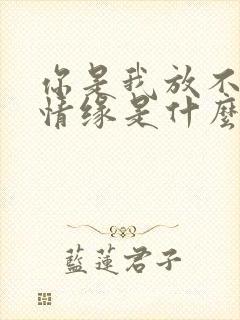 你是我放不
情缘是什麽
藍蓮君子